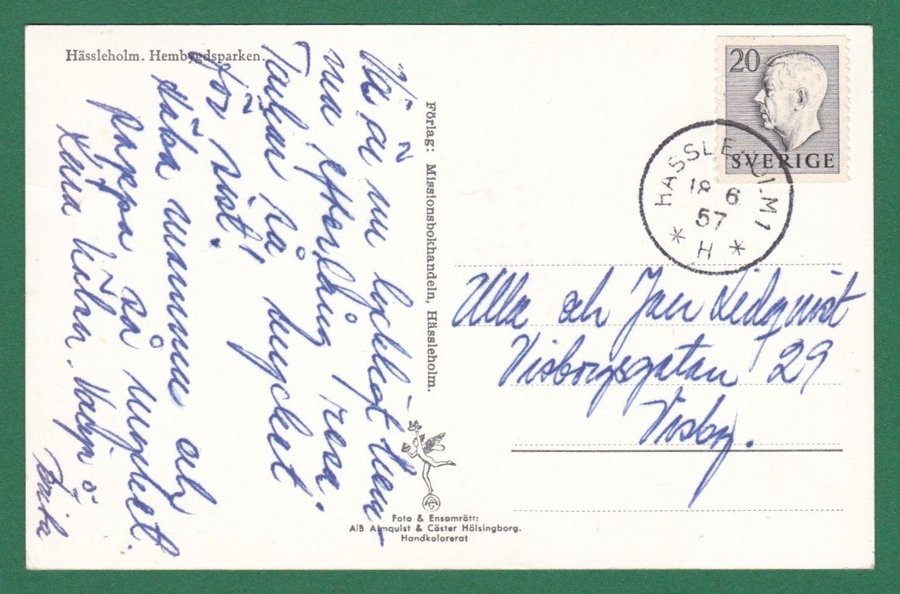 Hässleholm. Hembygdsparken.
Vi är nu lyckligt hem-
ma efter lång resa.
Tackar så mycket
för sist!
Hälsa mamma och
pappa så mycket.
Kära hälsn. o
Brita
Förlag: Missionsbokhandeln, Hässleholm.
Foto & Ensamrätt:
A/B Almquist & Cöster Hälsingborg.
Handkolorerat
20
SVERIGE
HÄSSLEHOLM 1
18 6
57
* H *
Ulla och Jan Lidqvist
Visborgsgatan 29
Visby.